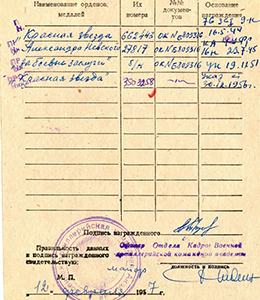 Наименование орденов, медалей
Их номера
№№ документов
Основание награждения
"Красная звезда" 662443 ОК №E303316 16.5.44
Александра Невского 37817 ОК №E303316 16 23.7.45
за боевые заслуги б/н ОК №E303316 19.11.51
"Красная звезда" 3503258 —"— Указ
30.12.1956г.
Подпись награжденного
Правильность данных
и подпись награжденного
свидетельствую:
Офицер Отдела Кадров Военной
артиллерийской командной академии
майор
должность и подпись
М. П.
"12" февраля 1957 г.